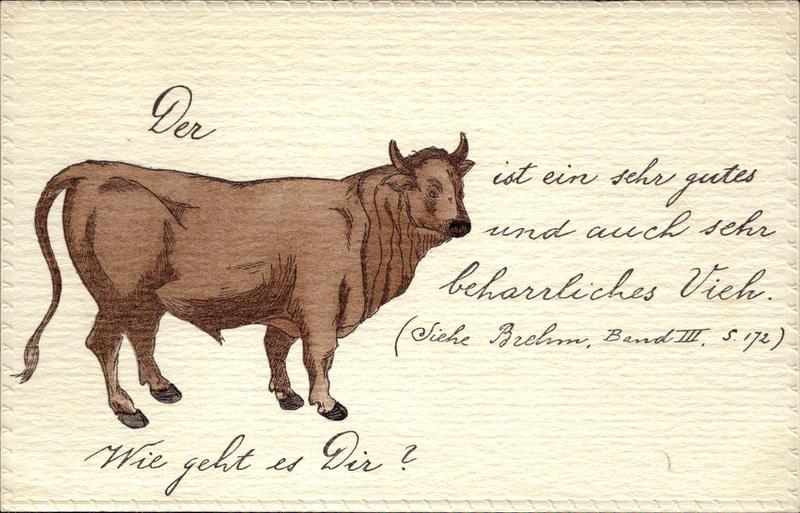 Der
ist ein sehr gutes
und auch sehr
beharrliches Vieh.
(Siehe Brehm, Band III, S. 172)
Wie geht es Dir?